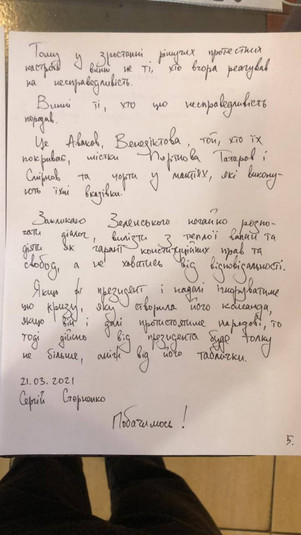 Тому у зростанні рішучих протестних
настроїв винні не ті, хто вчора реагував
на несправедливість.
Винні ті, хто цю несправедливість
породив.
Це Аваков, Венедіктова, той, хто їх
покриває, містки Портнова Татаров і
Смірнов та чорти у мантіях, які викону-
ють їхні вказівки.
Закликаю Зеленського негайно розпо-
чати діалог, вилізти з теплої ванни та
діяти як гарант конституційних прав та
свобод, а не ховатись від відповідальності.
Якщо ж президент і надалі ігноруватиме
цю кризу, яку створила його команда,
якщо він і далі протистоятиме народові, то
тоді дійсно від президента буде толку
не більше, аніж від його таблички.
21.03.2021
Сергій Стерненко
Побачимось!
5.